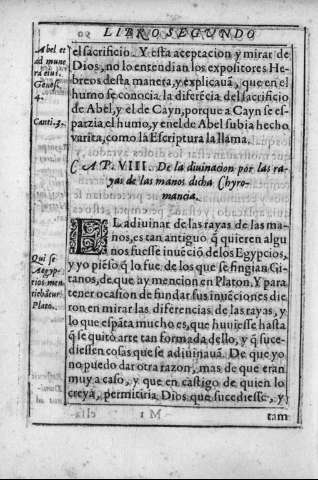 LIBRO SEGVNDO
Abel et
ad mune
ra eius.
Genes.
4.
Canti.3.
el sacrificio. Y esta aceptacion y mirar de
Dios, no lo entendian los expositores He-
breos desta manera, y explicauā, que en el
humo se conocia la diferēcia del sacrificio
de Abel, y el de Cayn, porque a Cayn se es-
parzia el humo, y en el de Abel subia hecho
varita, como la Escriptura la llama.
CAP. VIII. De la diuinacion por las ra-
yas de las manos dicha Chyro-
mancia.
EL adiuinar de las rayas de las ma-
nos, es tan antiguo q̄ quieren algu
nos fuesse inuēciō de los Egypcios,
y yo piēso q̄ lo fue de los que se fingian Gi-
tanos, de que ay mencion en Platon. Y para
tener ocasion de fundar sus inuēciones die
ron en mirar las diferencias de las rayas, y
lo que espāta mucho es, que huuiesse hasta
q̄ se quitò arte tan formada dello, y q̄ suce-
diessen cosas que se adiuinauā. De que yo
no puedo dar otra razon, mas de que eran
muy a caso, y que en castigo de quien lo
creya, permitiria Dios que sucediesse, y
Qui se
Aegyp-
tios men
tiebātur
Plato.
M 1
tam